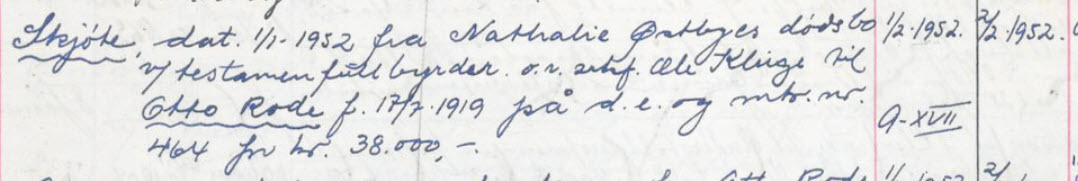 Skjøte, dat. 1/1-1952 fra Nathalie Østbyes dødsbo 1/2-1952. 2/2-1952.
v/ testamentfullbyrder o.r. sakf. Ole Kluge til
Otto Rode f. 17/7-1919 på d.e. og mtr. nr.
464 for kr. 38.000,-. 9-XVII
Otto Rode 1/2-1952 2/